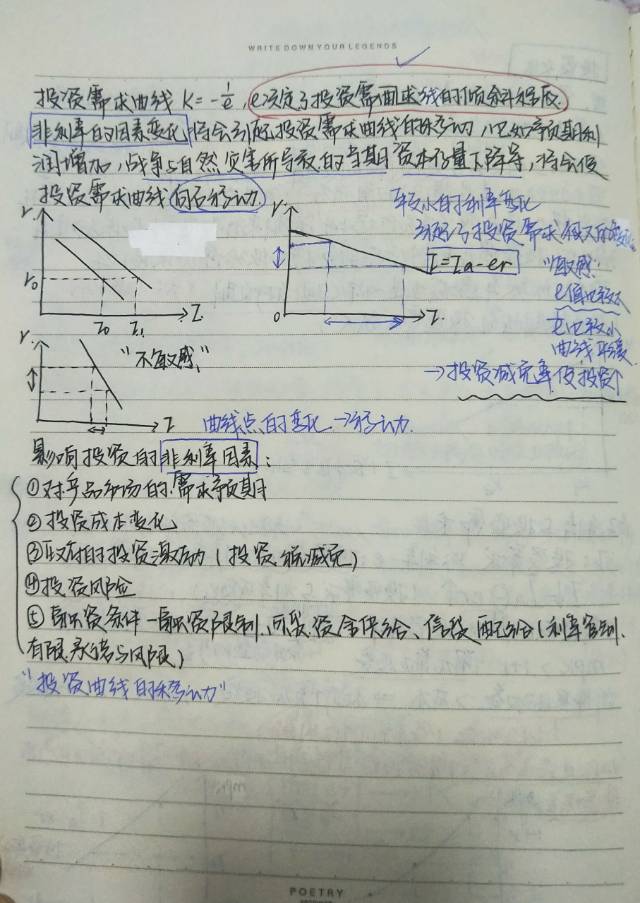 WRITE DOWN YOUR LEGENDS
投资需求曲线 K=-1/e, e决定了投资需面求线的倾斜程度.
非利率的因素变化,将会引起投资需求曲线的移动,比如预期利
润增加,战争与自然灾害所导致的当期资本存量下降等,将会使
投资需求曲线向右移动.
较小的利率变化
引起了投资需求很大的变化
r.
r0
I0 I1
I.
r.
0
I.
I=Ia-er
"敏感"
e值比较大
1/e比较小
曲线平缓
→投资减免率使投资个
r.
I
"不敏感"
曲线点的变化→移动.
影响投资的非利率因素:
①对产品市场的需求预期
②投资成本变化
③政府的投资激励(投资税减免)
④投资风险
⑤融资条件-融资限制、所我资金供给、信贷配给(利率管制.
有限承诺与风限)
"投资曲线的移动"
POETRY